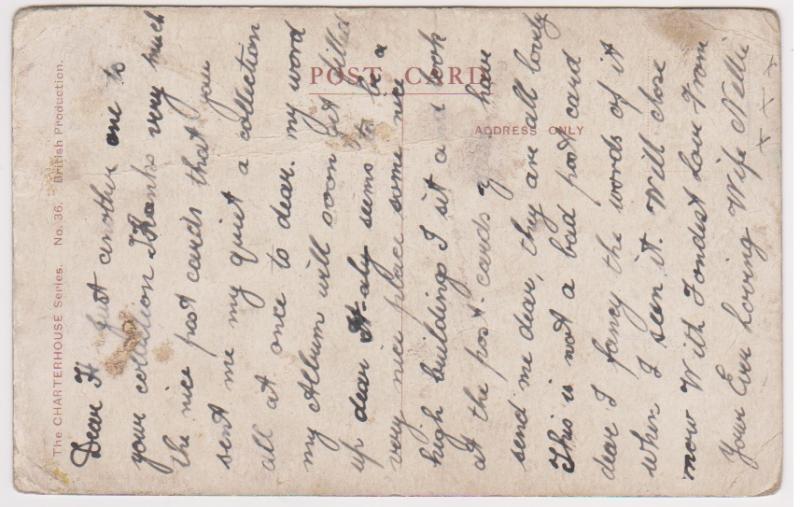 The CHARTERHOUSE Series. No. 36. British Production.
POST CARD
ADDRESS ONLY
Dear H Just another one to
your collection Thanks very much
the nice post cards that you
sent me my quiet a collection
all at once to dear. my word
my Album will soon get filled
up dear It-aly seems to be a
very nice place some nice
high buildings I sit and look
at the post cards you have
send me dear, they are all lovely
This is not a bad post card
dear I fancy the words of it
when I seen it. Will close
now With Fondest Love From
Your Ever Loving Wife Nellie
x x x